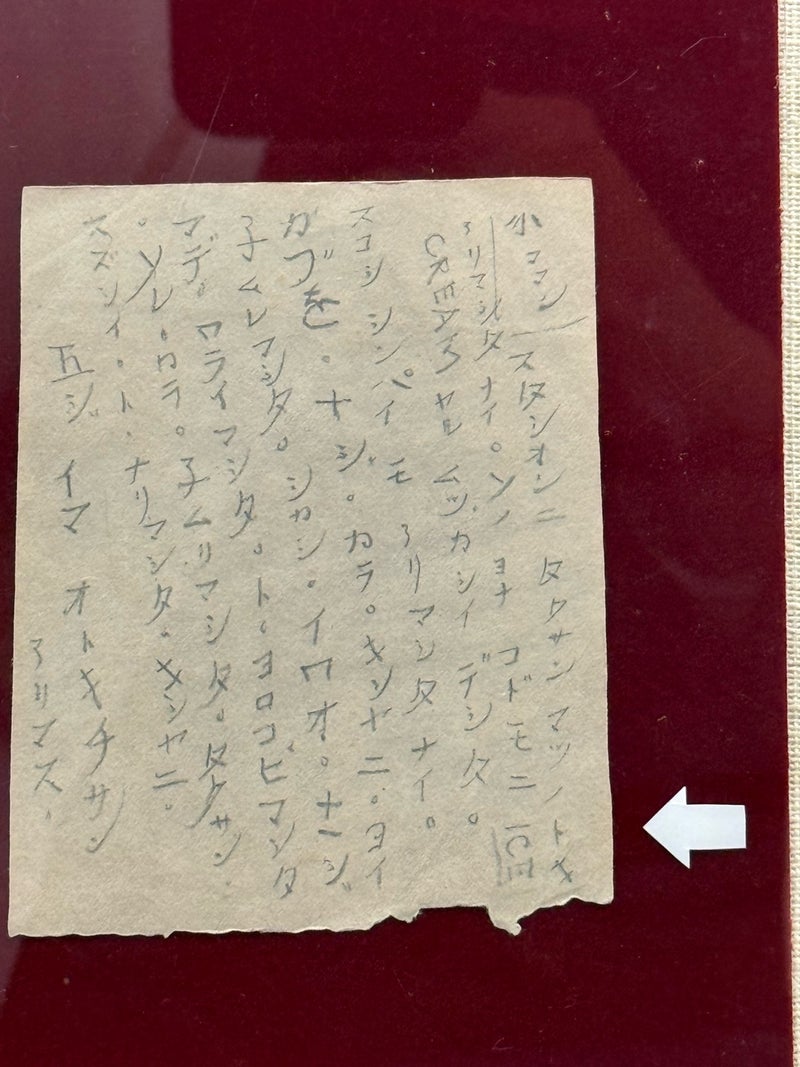 小ママ スタシオンニ タクサン マツノトキ
アリマシタナイ。ソノ ヨナ コドモニ ICE
CREAM ヤル ムヅカシイ デシタ。
スコシ シンパイ モ アリマシタナイ。
カヅを。ナジ。カラ。キシヤニ。ヨイ
子ムレマシタ。シカシ。イワオ。ナージ
マデ。ワライマシタ。ト。ヨロコビマシタ
。ソレ。カラ。子ムリマシタ。タクサン。
スズシイ。ト。ナリマシタ。キシヤニ。
五ジ イマ オトキチサン
アリマス。